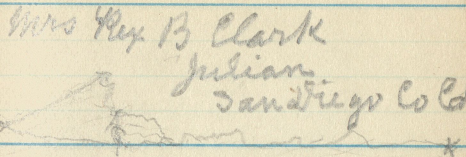 Mrs Rex B Clark
Julian
San Diego Co Ca